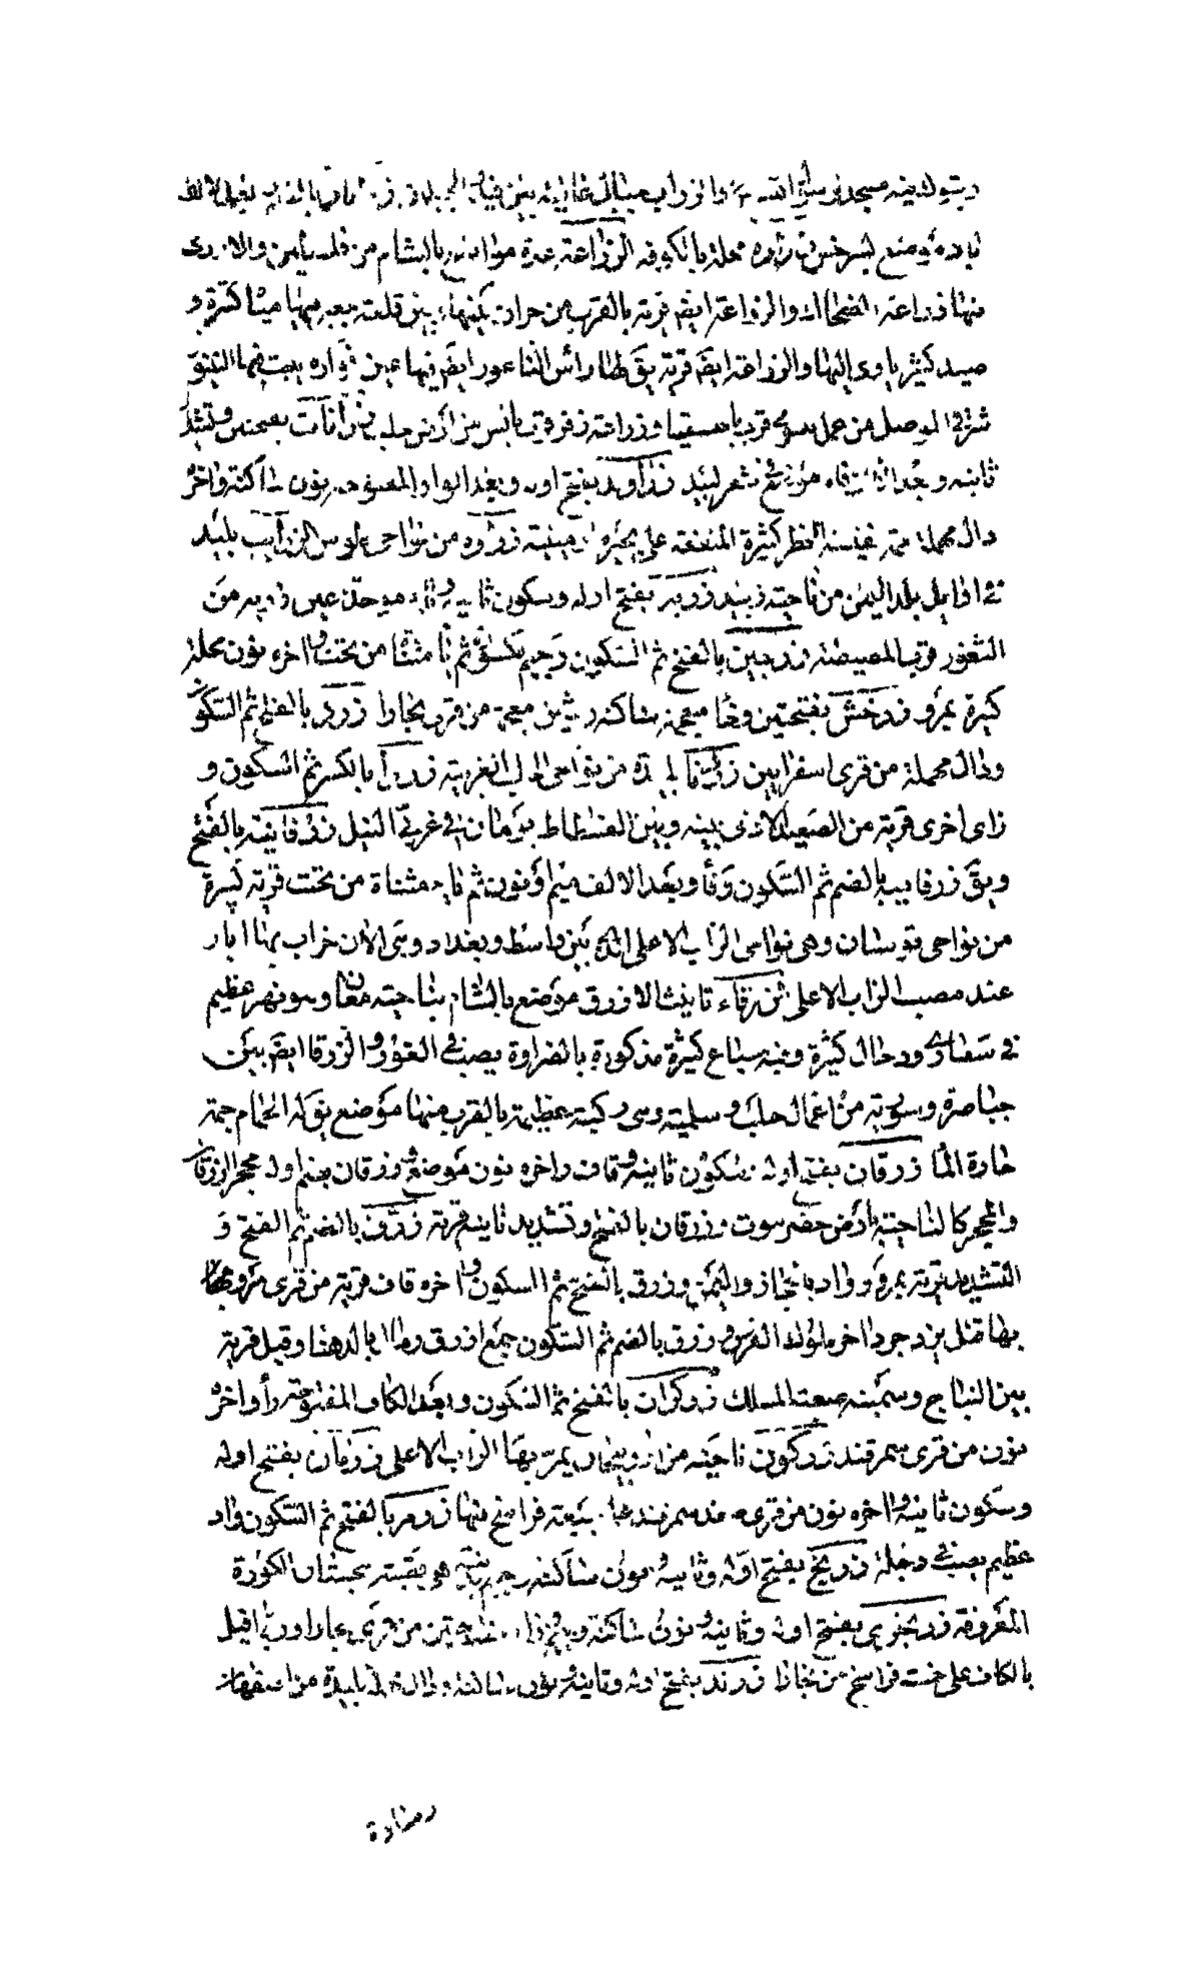 وتبوك بنيه مسجد رسول الله
موضع بسرخس زرارة محلة بالكوفه الزراعة عدة مواضع بالشام من فلسطين والاردن
منها زراعة الضحاك والزراعة ايض قرية بالقرب من حران بينها وبين قلعة جعبر بها مياه كثيرة و
صيد كثير ياوى اليها والزراعة ايض قرية يق لها راس الناعور ايض فيها عين فواره ينبت فيها اللينوفر
شرقى الموصل من عمل نينوى قرب باعشيقا وزراعة زفر قرب بالس من ارض حلب زرافات بفتحتين وتشديد
ثانيه وبعد الالف فاء موضع فى شعر لبيد زراوند بفتح اوله وبعد الواو المفتوحه نون ساكنة واخره
دال مهملة حمة نفيسة الخطر كثيرة المنفعة على بحيرة ارمينية زراوه من نواحى طوس الزرائب بليد
فى اوايل بلد اليمن من ناحية زبيد زربه بفتح اوله وسكون ثانيه وباء موحدة عين زربه من
الثغور قرب المصيصة زرجين بالفتح ثم السكون وجيم بكسر ثم يا مثناة من تحت واخره نون محلة
كبيرة بمرو زرخش بفتحتين وخا معجمة ساكنه وشين معجمة من قرى بخارا زرد بالفتح ثم السكون
ودال مهملة من قرى اسفراين زردنا بليدة من نواحى حلب الغربية زرزا بالكسر ثم السكون و
زاى اخرى قرية من الصعيد الادنى بينه وبين الفسطاط يومان فى غربى النيل زرفانية بالفتح
ويق زرفانيه بالضم ثم السكون وفا وبعد الالف ميم او نون ثم ياء مثناة من تحت قرية كبيرة
من نواحى قوسان وهى نواحى الزاب الاعلى الذى بين واسط وبغداد وهى الان خراب بها اثار
عند مصب الزاب الاعلى زرقاء تانيث الازرق موضع بالشام بناحية معان وهو نهر عظيم
فى شعارى ودحال كثيرة وفيه سباع كثيرة مذكورة بالضراوة يصب فى الغور والزرقا ايض بين
خناصرة وسورية من اعمال حلب وسلمية وهى ركية عظيمة بالقرب منها موضع يق له الحمام حمة
حارة الما زرقان بفتح اوله وسكون ثانيه وقاف واخره نون موضع وزرقان بضم اوله محجر الزرقان
والمحجر كالناحية بارض حضرموت وزرقان بالفتح وتشديد ثانيه قرية زرق بالضم ثم الفتح و
التشديد قرية بمرو وواد بالحجاز واليمن وزرق بالفتح ثم السكون واخره قاف قرية من قرى مرو بها
بها قتل يزدجرد اخر ملوك الفرس وزرق بالضم ثم السكون جمع ازرق رمال بالدهنا وقيل قرية
بين النباج وسمينه صعبه المسلك زركران بالفتح ثم السكون وبعد الكاف المفتوحة را واخره
نون من قرى سمرقند زركون ناحية من اذربيجان يمر بها الزاب الاعلى زرمان بفتح اوله
وسكون ثانيه واخره نون من قرى صغد سمرقند على سبعة فراسخ منها زرمر بالفتح ثم السكون واد
عظيم يصب فى دجلة زرنج بفتح اوله وثانيه ونون ساكنه وجيم مدينة هى قصبة سجستان الكورة
المعروفة زرنجرى بفتح اوله وثانيه ونون ساكنة وجيم من قرى بخارا وربما قيل
بالكاف على خمسة فراسخ من بخارا زرند بفتح اوله وثانيه نون ساكنة ودال مهملة بليدة من اصفهان
زرادة